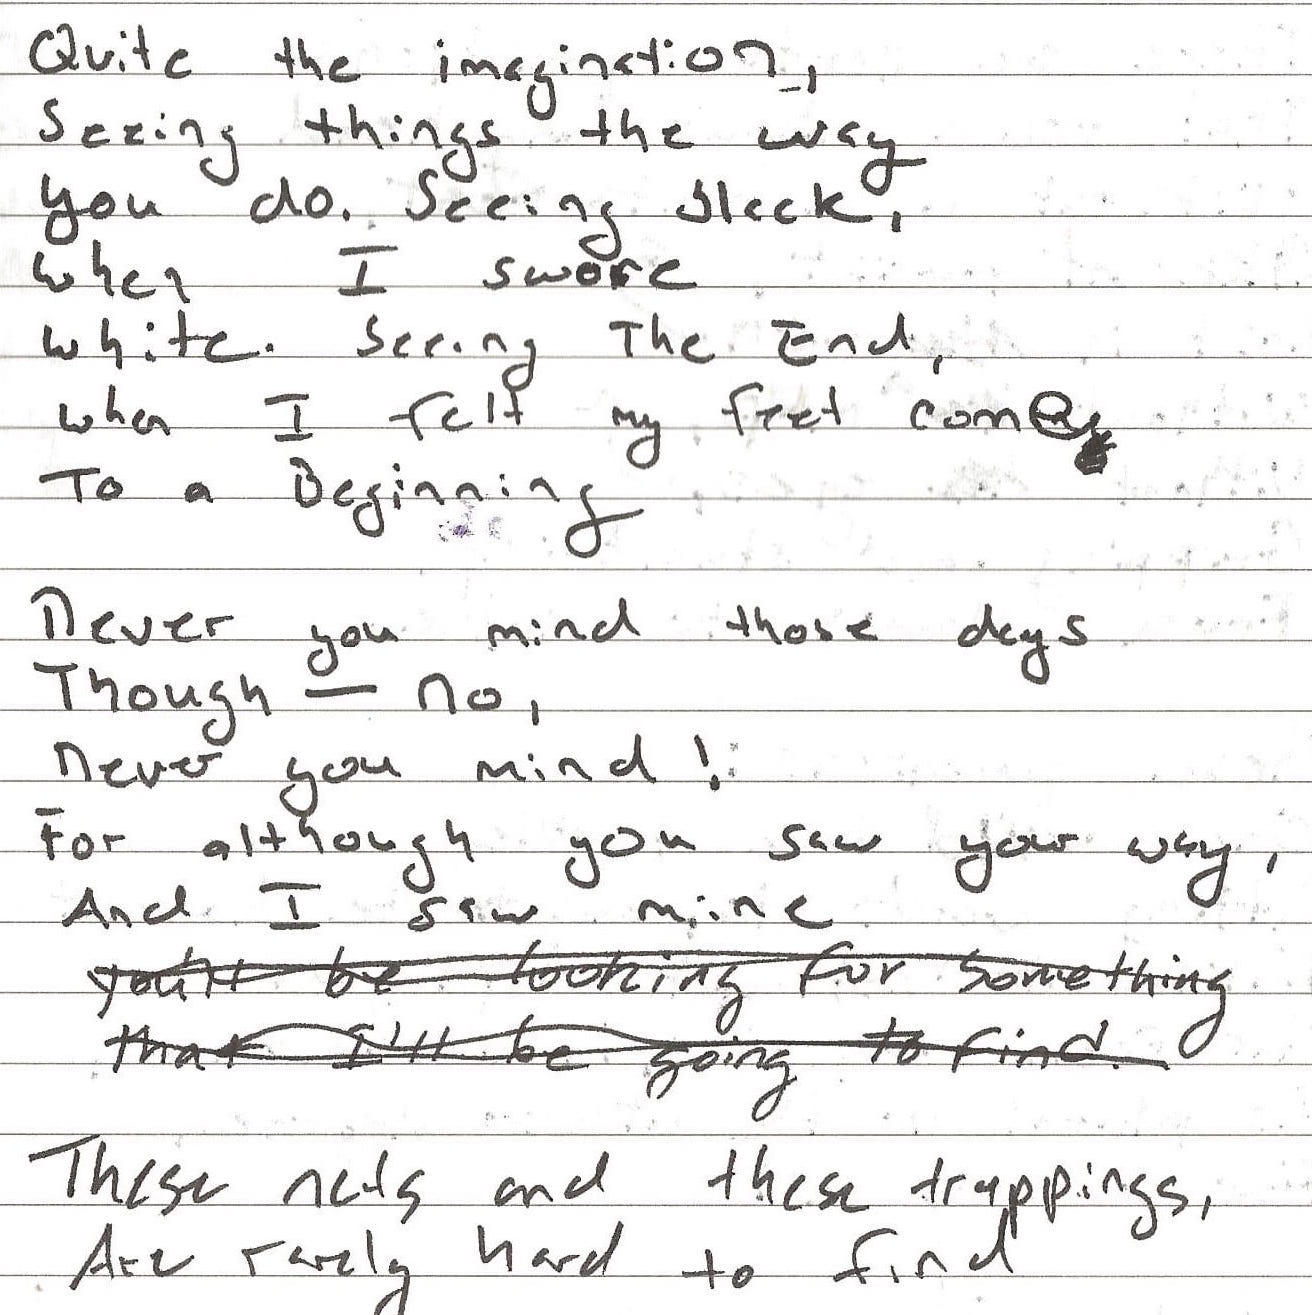 Quite the imagination,
Seeing things the way
you do. Seeing Black,
when I swore
white. Seeing The End,
when I felt my feet come
To a Beginning
Never you mind those days
Though — no,
Never you mind!
For although you saw your way,
And I saw mine
you'll be looking for something
that I'll be going to find.
These nets and these trappings,
Are rarely hard to find